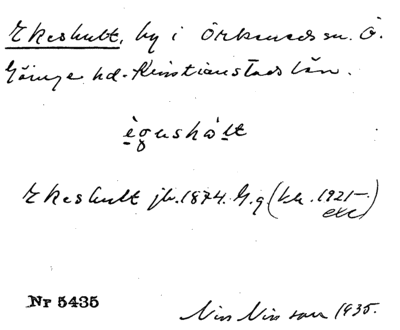 Ekeshult, by i Örkeneds sn. Ö.
Göinge hd. Kristianstads län.
ègushàlt
Ekeshult jb. 1874. G.g (kk. 1921– etc)
Nr 5435
Nils Nilsson 1935.